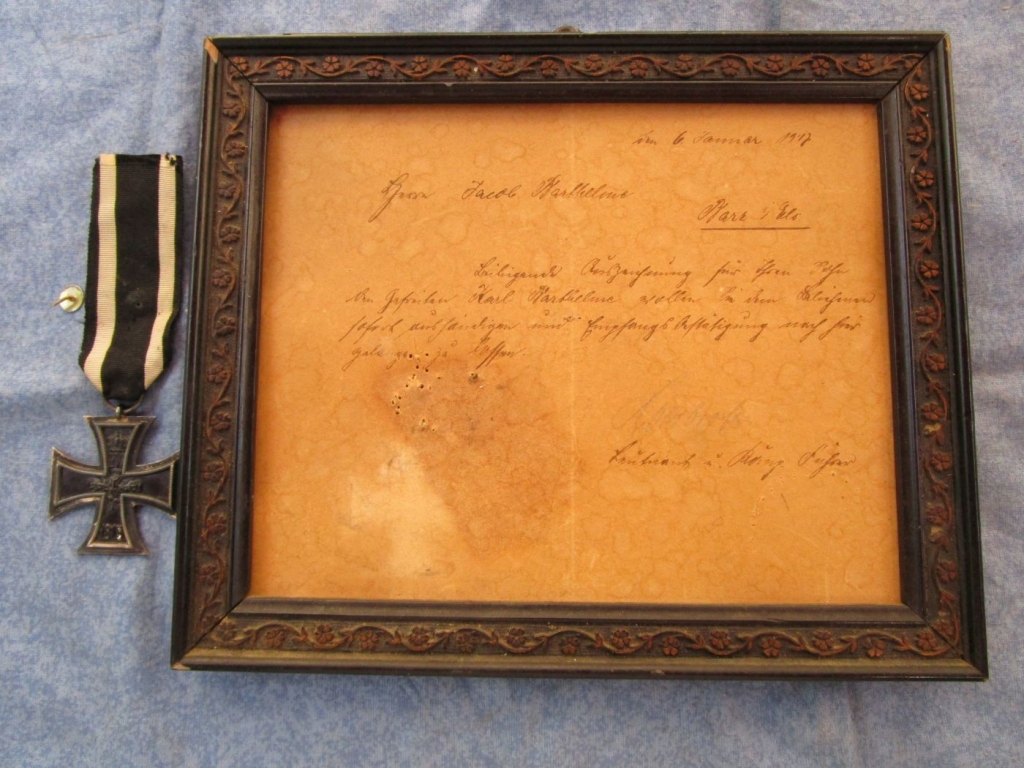 den 6. Januar 1917
Herrn Jacob Barthelme
Barr i/Els
Beiligende Auszeichnung für Ihren Sohn
den Gefreiten Karl Barthelme wollen Sie dem
sofort aushändigen und Empfangsbestätigung nach hier
Leutnant u. Komp Führer